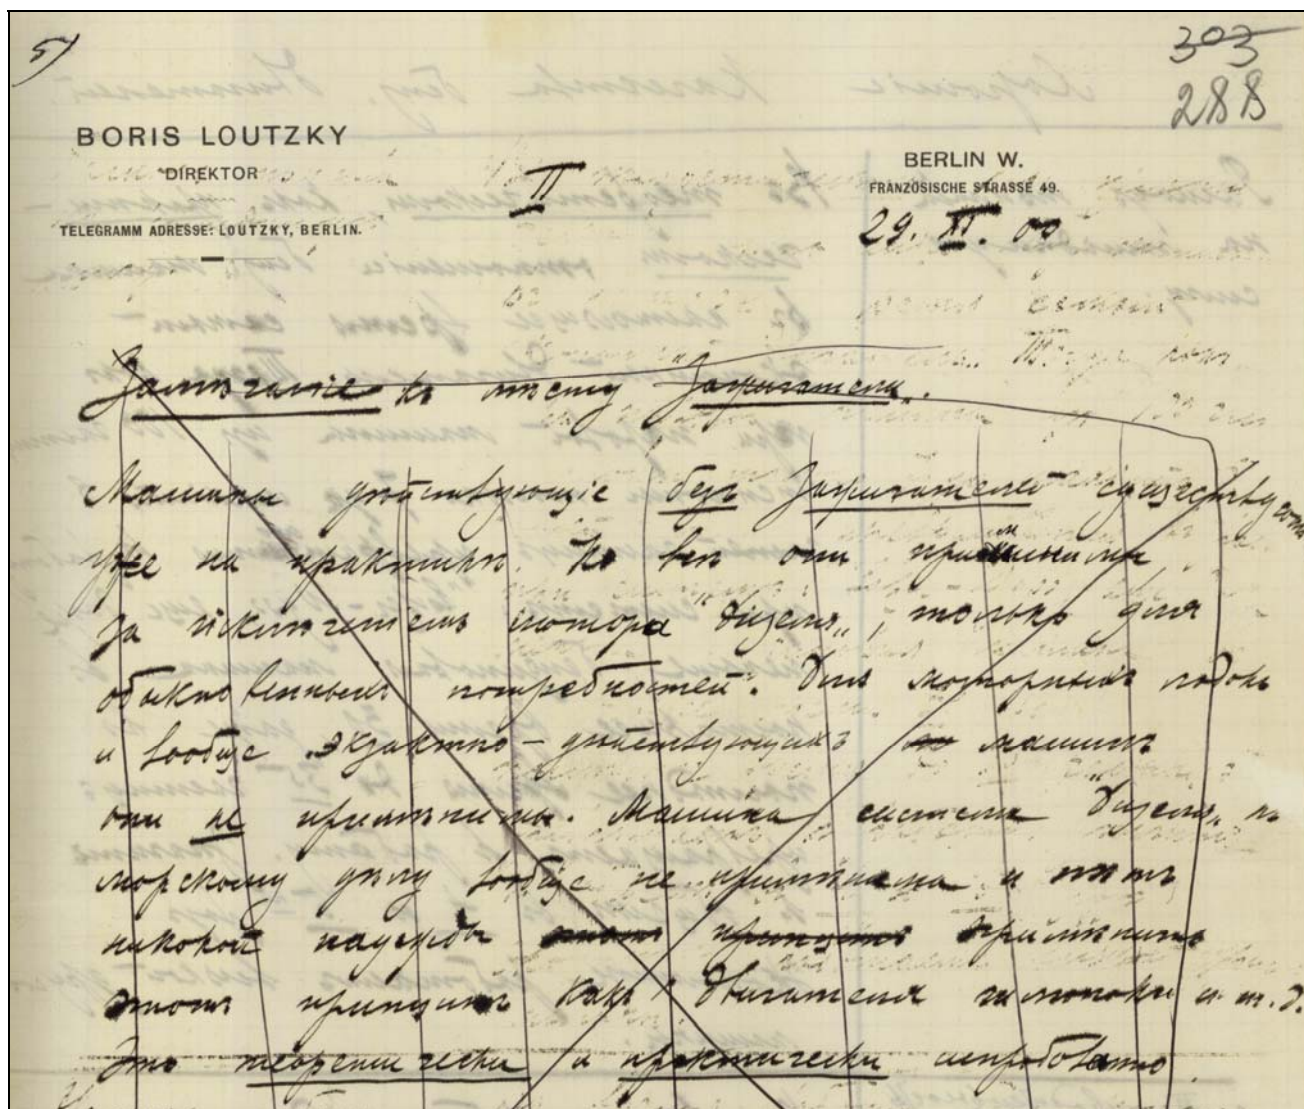 5)
303
288
BORIS LOUTZKY
DIREKTOR
TELEGRAMM ADRESSE: LOUTZKY, BERLIN.
II
BERLIN W.
FRANZÖSISCHE STRASSE 49.
29. XI. 00
Замѣчаніе къ отвѣту Зажигатели„.
Машины дѣйствующіе безъ Зажигателей существуютъ
уже на практикѣ. Но всѣ они примѣнимы
за исключеніемъ мотора "Дизеля„, только для
обыкновенныхъ потребностей. Для моторныхъ лодокъ
и вообще экзактно-дѣйствующихъ машинъ
они не примѣнимы. Машина системы "Дизель„ къ
морскому дѣлу вообще не примѣнима и нѣтъ
никокой надежды этотъ принципъ примѣнить
этотъ принципъ какъ двигателя и т. д.
Это теоретически и практически испробовано